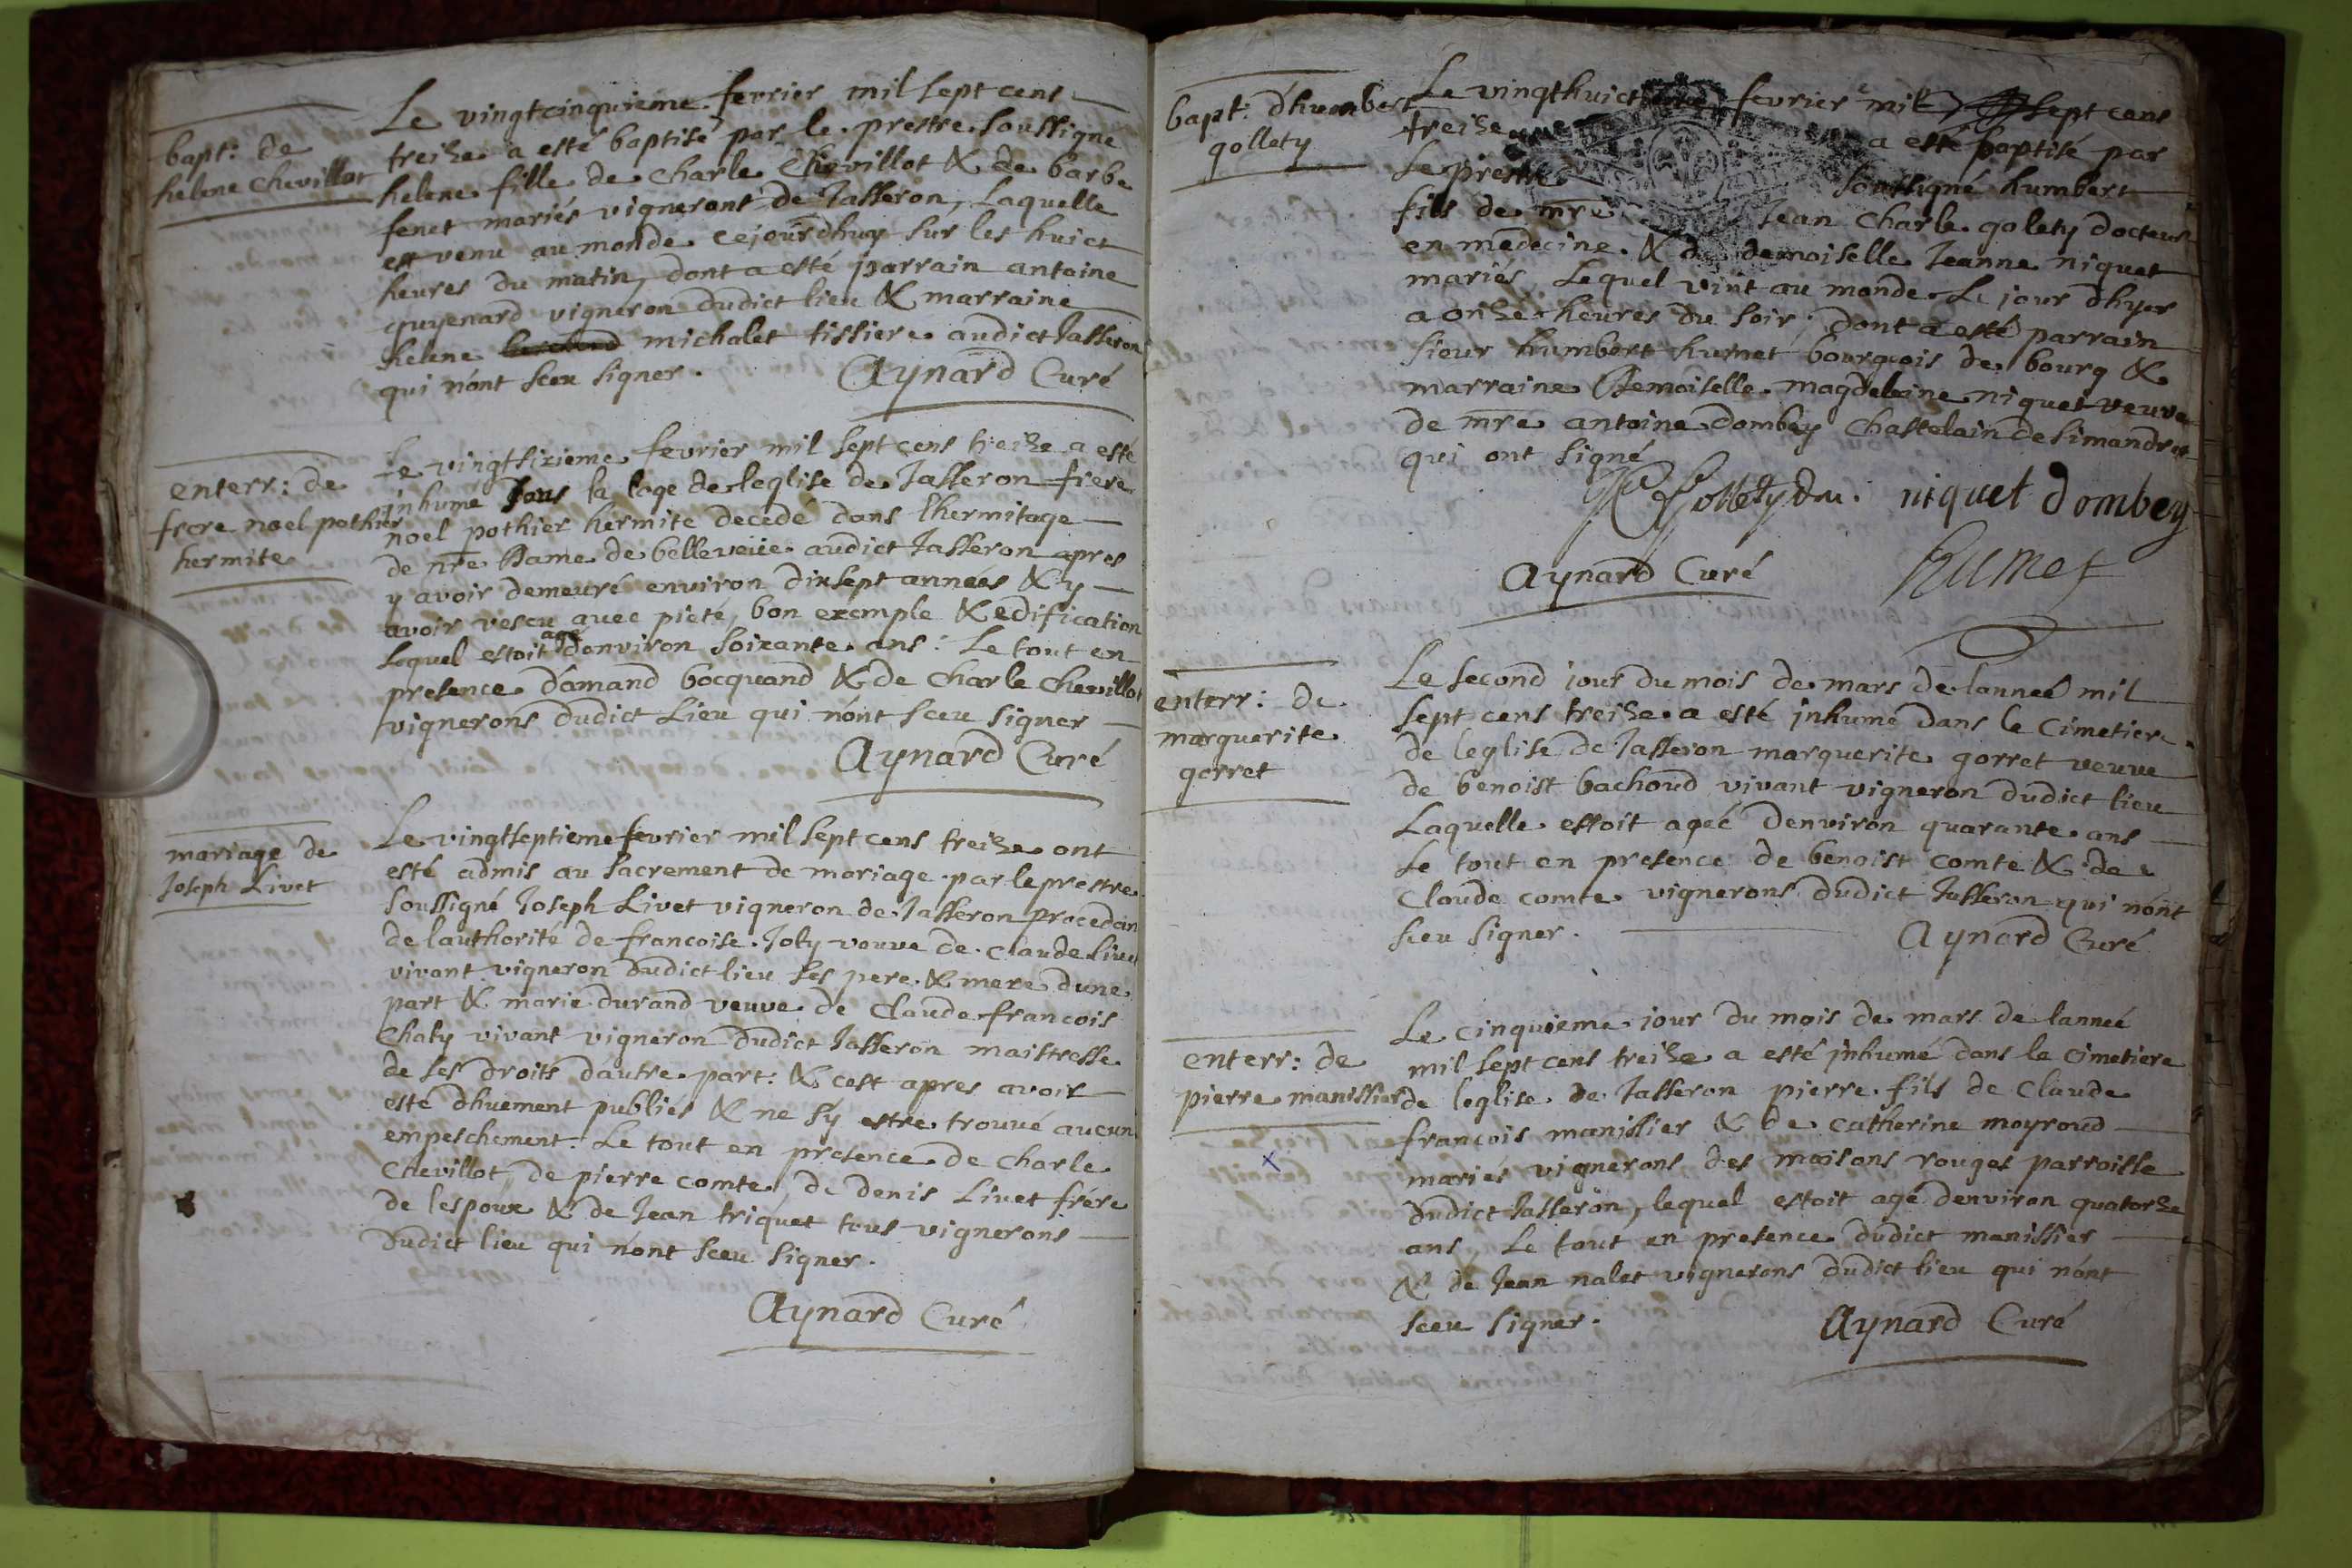 bapt: de
helene chevillot
Le vingtcinquieme fevrier mil sept cens
treize a esté baptisé par le prestre soussigne
helene fille de charle chevillot & de barbe
fenet mariés vignerons de Jasseron, Laquelle
est venu au monde cejourdhuy sur les huict
heures du matin, dont a esté parrain antoine
guyenard vigneron dudict lieu & marraine
helene michalet tissiere audict Jasseron
qui nont sceu signer. Aynard Curé
enterr: de
frere noel pothier
hermite
Le vingtsixieme fevrier mil sept cens treize a esté
inhume sous la loge de leglise de Jasseron frere
noel pothier hermite decedé dans lhermitage
de nre Dame de belleveüe audict Jasseron apres
y avoir demeuré environ dixsept années & y
avoir vescu avec pieté, bon exemple & edification
lequel estoit agé denviron soixante ans: Le tout en
presence damand bocquand & de charle chevillot
vignerons dudict Lieu qui nont sceu signer
Aynard Curé
mariage de
Joseph Livet
Le vingtseptieme fevrier mil sept cens treize ont
esté admis au sacrement de mariage par leprestre
soussigné Joseph Livet vigneron de Jasseron procedan
de lauthorité de francoise Joly veuve de claude Live
vivant vigneron dudict lieu ses pere & mere dune
part & marie durand veuve de Claude francois
Chaty vivant vigneron dudict Jasseron maistresse
de ses droits dautre part: & cest apres avoir
esté dhuement publiés & ne sy estre trouvé aucun
empeschement. Le tout en presence de charle
Chevillot, de pierre comte, de denis Livet frére
de lespoux & de Jean triquet tous vignerons
dudict lieu qui nont sceu signer.
Aynard Curé
bapt: dhumbert
gollety
Le vingthuict fevrier mil sept cens
treize a esté baptisé par
Le prestre soussigné humbert
fils de mre Jean Charle galety docteur
en medecine & de demoiselle Jeanne niquet
mariés, Lequel vint au monde Le jour dhyer
a onze heures du soir; dont a esté parrain
sieur humbert humet bourgeois de bourg &
marraine Demoiselle magdeleine niquet veuve
de mre antoine dombey Chastelain de simandre
qui ont signé
Gollety dm. niquet dombey
Aynard Curé humet
enterr: de
marguerite
gorret
Le second jour du mois de mars de lanneé mil
sept cens treize a esté inhumé dans le cimetiere
de leglise de Jasseron marguerite gorret veuve
de benoist bachoud vivant vigneron dudict lieu
Laquelle estoit ageé denviron quarante ans
Le tout en presence de benoist comte & de
Claude comte vignerons dudict Jasseron qui nont
sceu signer. Aynard Curé
enterr: de
pierre manissier
Le cinquieme jour du mois de mars de lanneé
mil sept cens treize a esté inhumé dans le cimetiere
de leglise de Jasseron pierre fils de Claude
francois manissier & de catherine moyroud
mariés vignerons des maisons rouges parroisse
dudict Jasseron, lequel estoit agé denviron quatorze
ans, Le tout en presence dudict manissier
& de Jean nalet vignerons dudict lieu qui nont
sceu signer. Aynard Curé